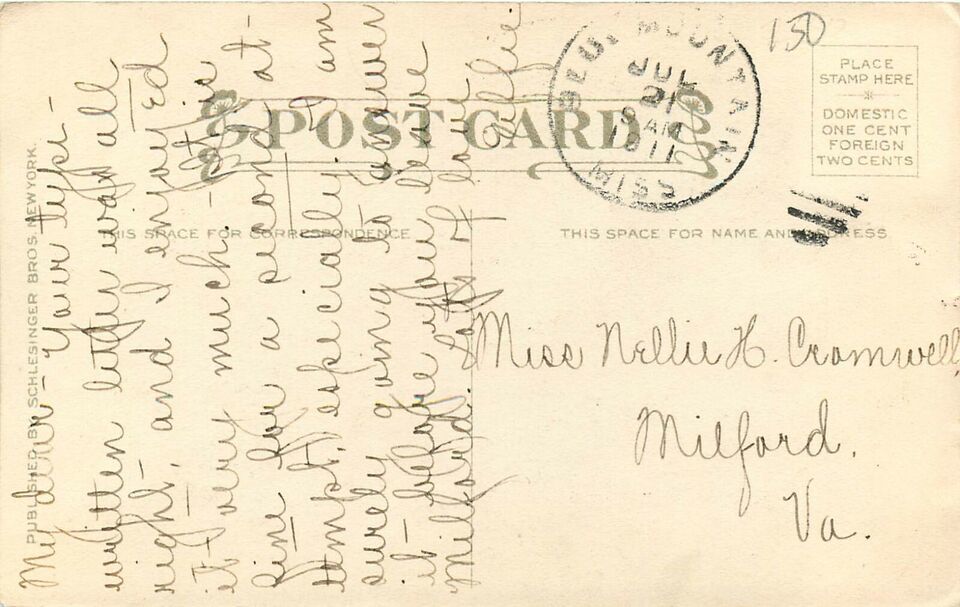 My dear - Your type-
written letter was all
right, and I enjoyed
it very much. - It is
fine for a second at-
tempt, especially. I am
surely going to answer
it before you leave
Milford. Lots of love -
150
BLUE MOUNTAIN
JUL
21
9 AM
1911
MISS.
PLACE
STAMP HERE
DOMESTIC
ONE CENT
FOREIGN
TWO CENTS
POST CARD
THIS SPACE FOR CORRESPONDENCE
THIS SPACE FOR NAME AND ADDRESS
PUBLISHED BY SCHLESINGER BROS. NEW YORK.
Miss Nellie H. Cromwell,
Milford.
Va.